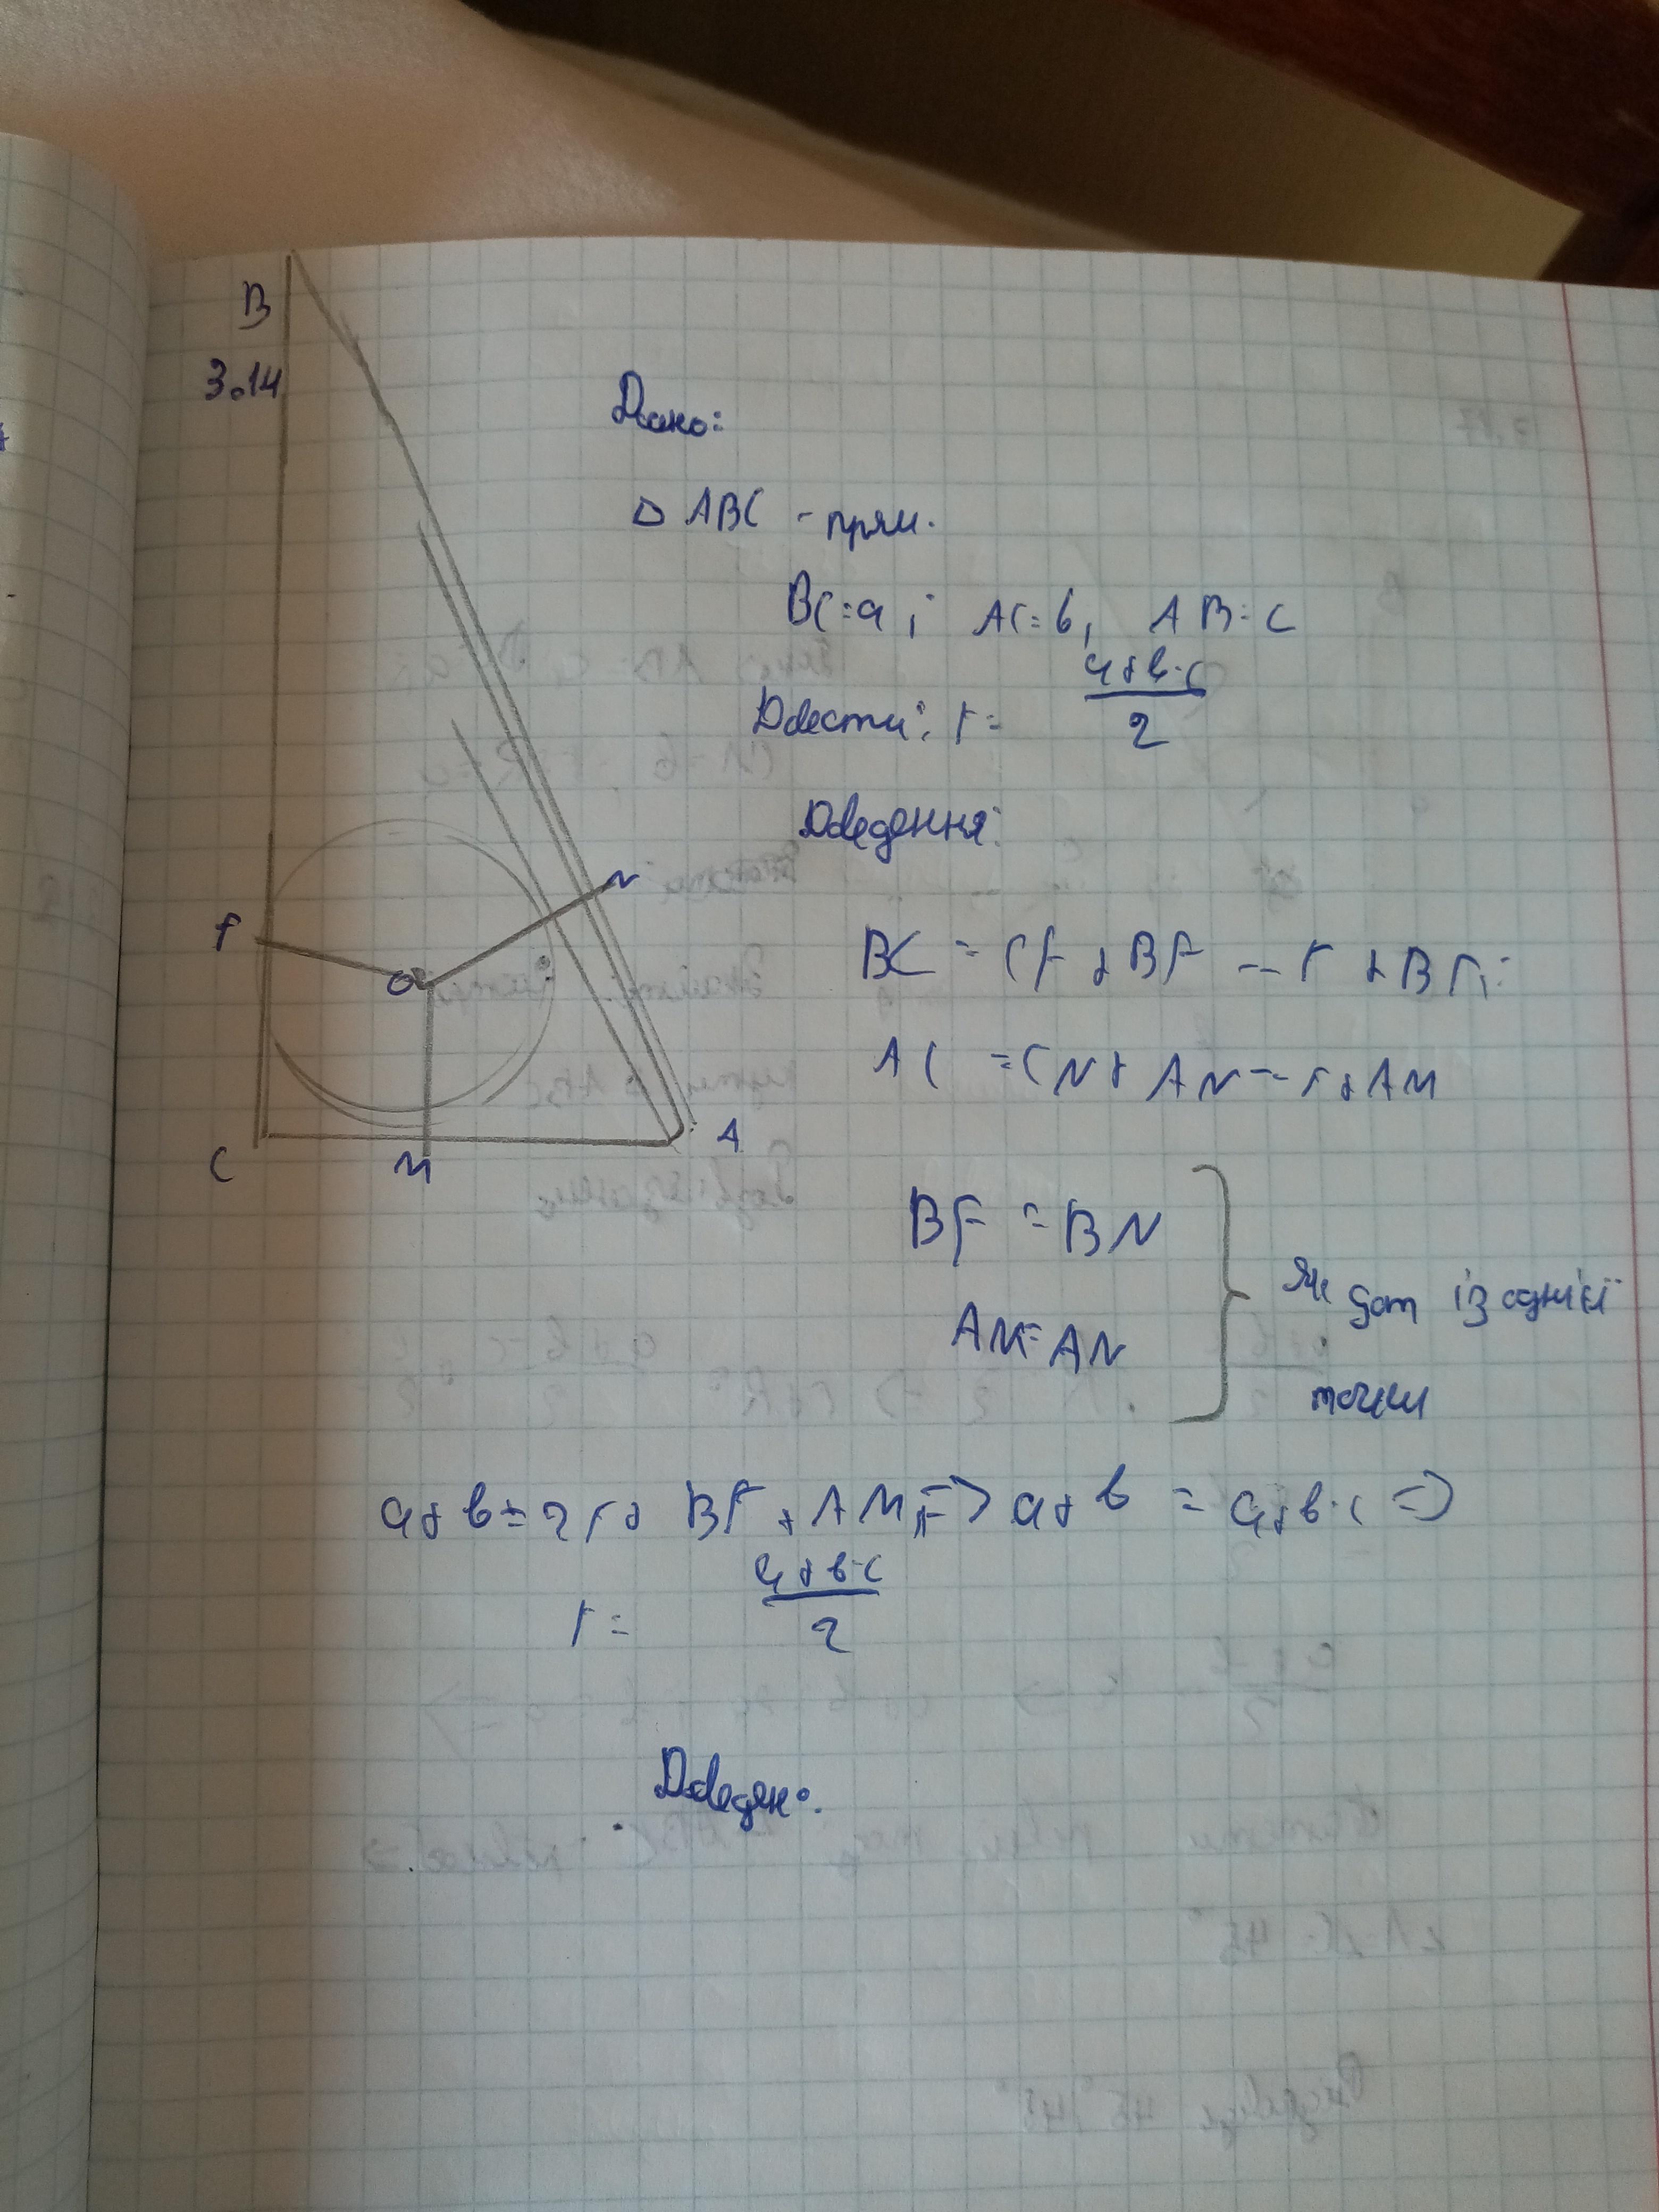 B
3.14
Дано:
△ ABC - прям.
BC=a; AC=b, AB=c
Довести: r= a+b-c / 2
Доведення:
N
F
O
C
M
A
BC = CF + BF = r + BF;
AC = CM + AM = r + AM
BF = BN
AM=AN
Як дот із однієї
точки
a+b=2r+ BF + AM => a+b = a+b-c =>
r= a+b-c / 2
Доведено.